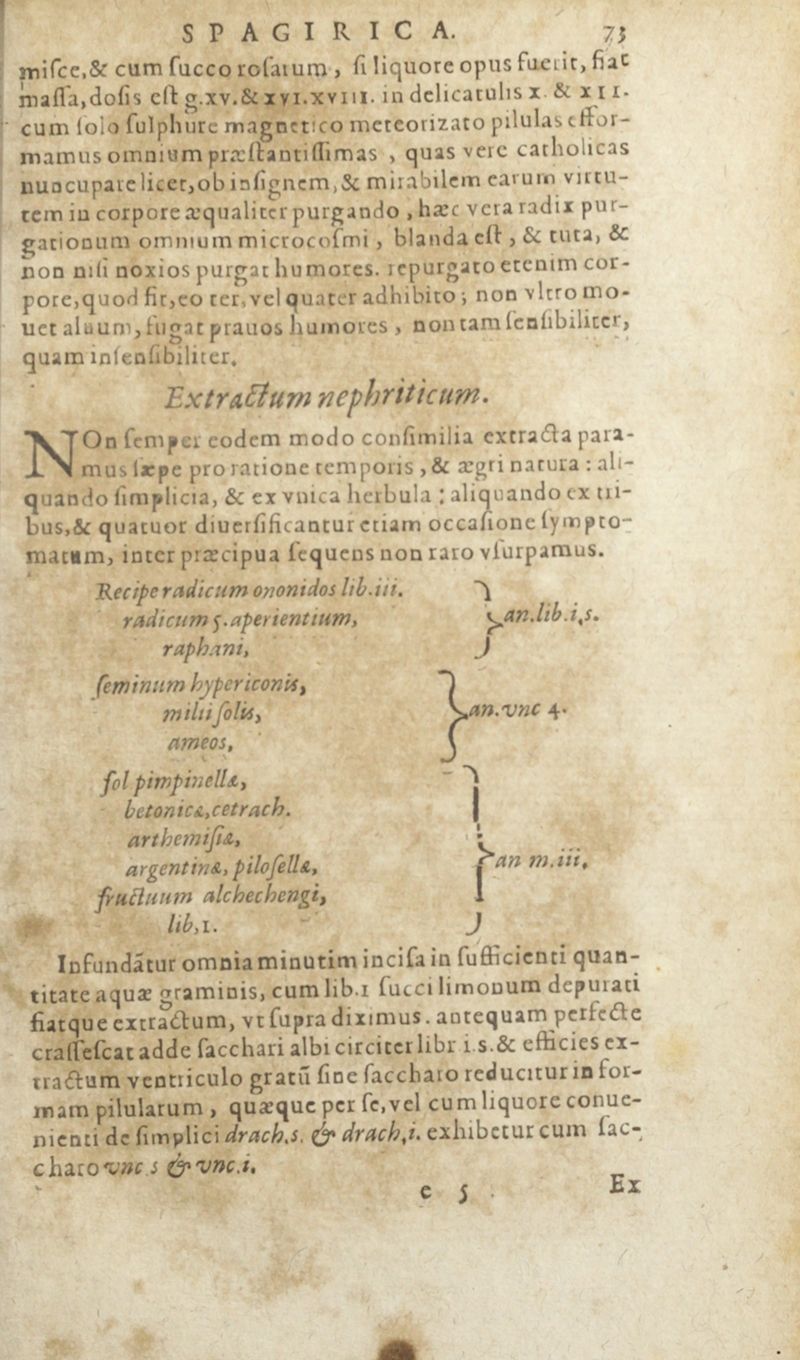 SPAGIRICA. 73
miſce,& cum ſucco roſatum, ſi liquore opus fuerit, fiat
maſſa,doſis eſt g.xv.& xvi.xviii. in delicatulis x. & xii.
cum ſolo ſulphure magnetico meteorizato pilulas effor-
mamus omnium præſtantiſſimas , quas vere catholicas
nuncupare licet,ob inſignem,& mirabilem earum virtu-
tem in corpore æqualiter purgando , hæc vera radix pur-
gationum omnium microcoſmi , blanda eſt , & tuta, &
non niſi noxios purgat humores. repurgato etenim cor-
pore,quod fit,eo ter,vel quater adhibito; non vltro mo-
uet aluum, fugat prauos humores , non tam ſenſibiliter,
quam inſenſibiliter.
Extractum nephriticum.
NOn ſemper eodem modo conſimilia extracta para-
mus ſæpe pro ratione temporis , & ægri natura : ali-
quando ſimplicia, & ex vnica herbula : aliquando ex tri-
bus,& quatuor diuerſificantur etiam occaſione ſympto-
matum, inter præcipua ſequens non raro vſurpamus.
Recipe radicum ononidos lib.iii.
radicum 5.aperientium, } an.lib.i,s.
raphani,
ſeminum hypericonis,
milii ſolis, } an.vnc 4.
ameos,
fol pimpinellæ,
betonicæ,cetrach.
arthemiſiæ,
argentinæ, piloſellæ, } an m.iii.
fructuum alchechengi,
lib,1.
Infundātur omnia minutim inciſa in ſufficienti quan-
titate aquæ graminis, cum lib.1 ſucci limonum depurati
fiatque extractum, vt ſupra diximus. antequam perfecte
craſſeſcat adde ſacchari albi circiter libr i.s.& efficies ex-
tractum ventriculo gratū ſine ſaccharo reducitur in for-
mam pilularum , quæque per ſe,vel cum liquore conue-
nienti de ſimplici drach.s. & drach,i. exhibetur cum ſac-
charo vnc.s & vnc.i.
e 5 Ex